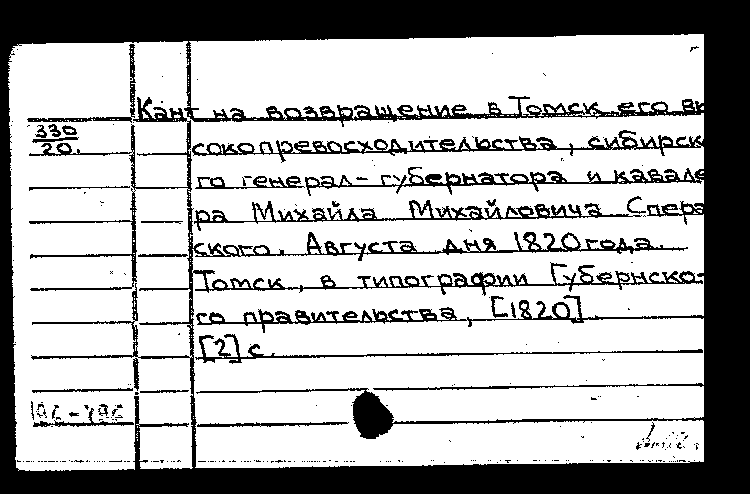 Кант на возвращение в Томск его вы
330
20.
сокопревосходительства, сибирск
го генерал-губернатора и кавале
ра Михайла Михайловича Спера
ского. Августа дня 1820 года.
Томск, в типографии Губернско-
го правительства, [1820]
[2] с.